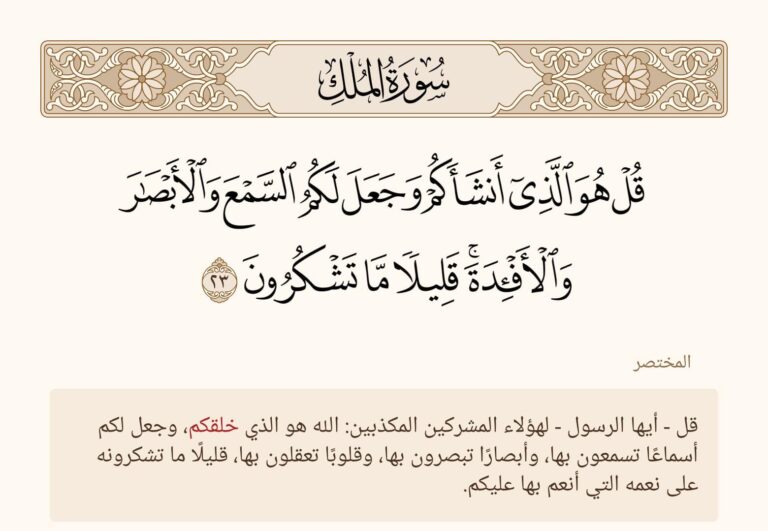 سُورَةُ المُلْكِ
قُلْ هُوَ ٱلَّذِىٓ أَنشَأَكُمْ وَجَعَلَ لَكُمُ ٱلسَّمْعَ وَٱلْأَبْصَٰرَ
وَٱلْأَفْـِٔدَةَ ۖ قَلِيلًا مَّا تَشْكُرُونَ ٢٣
المختصر
قل - أيها الرسول - لهؤلاء المشركين المكذبين: الله هو الذي خلقكم، وجعل لكم
أسماعًا تسمعون بها، وأبصارًا تبصرون بها، وقلوبًا تعقلون بها، قليلًا ما تشكرونه
على نعمه التي أنعم بها عليكم.